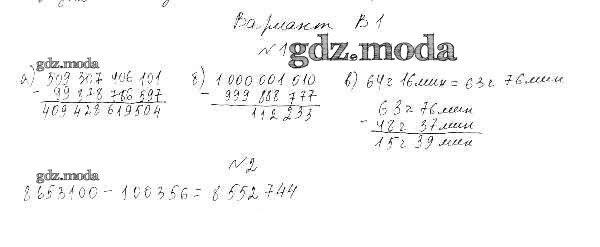 Вариант В1
№1
gdz.moda
gdz.moda
а) 509 307 406 101 б) 1 000 001 010 в) 64г 16мин = 63г 76мин
- 99 878 786 597 - 999 888 777 63г 76мин
409 428 619504 112 233 - 48г 37мин
15г 39мин
№2
gdz.moda
8653100 - 100356 = 8 552 744